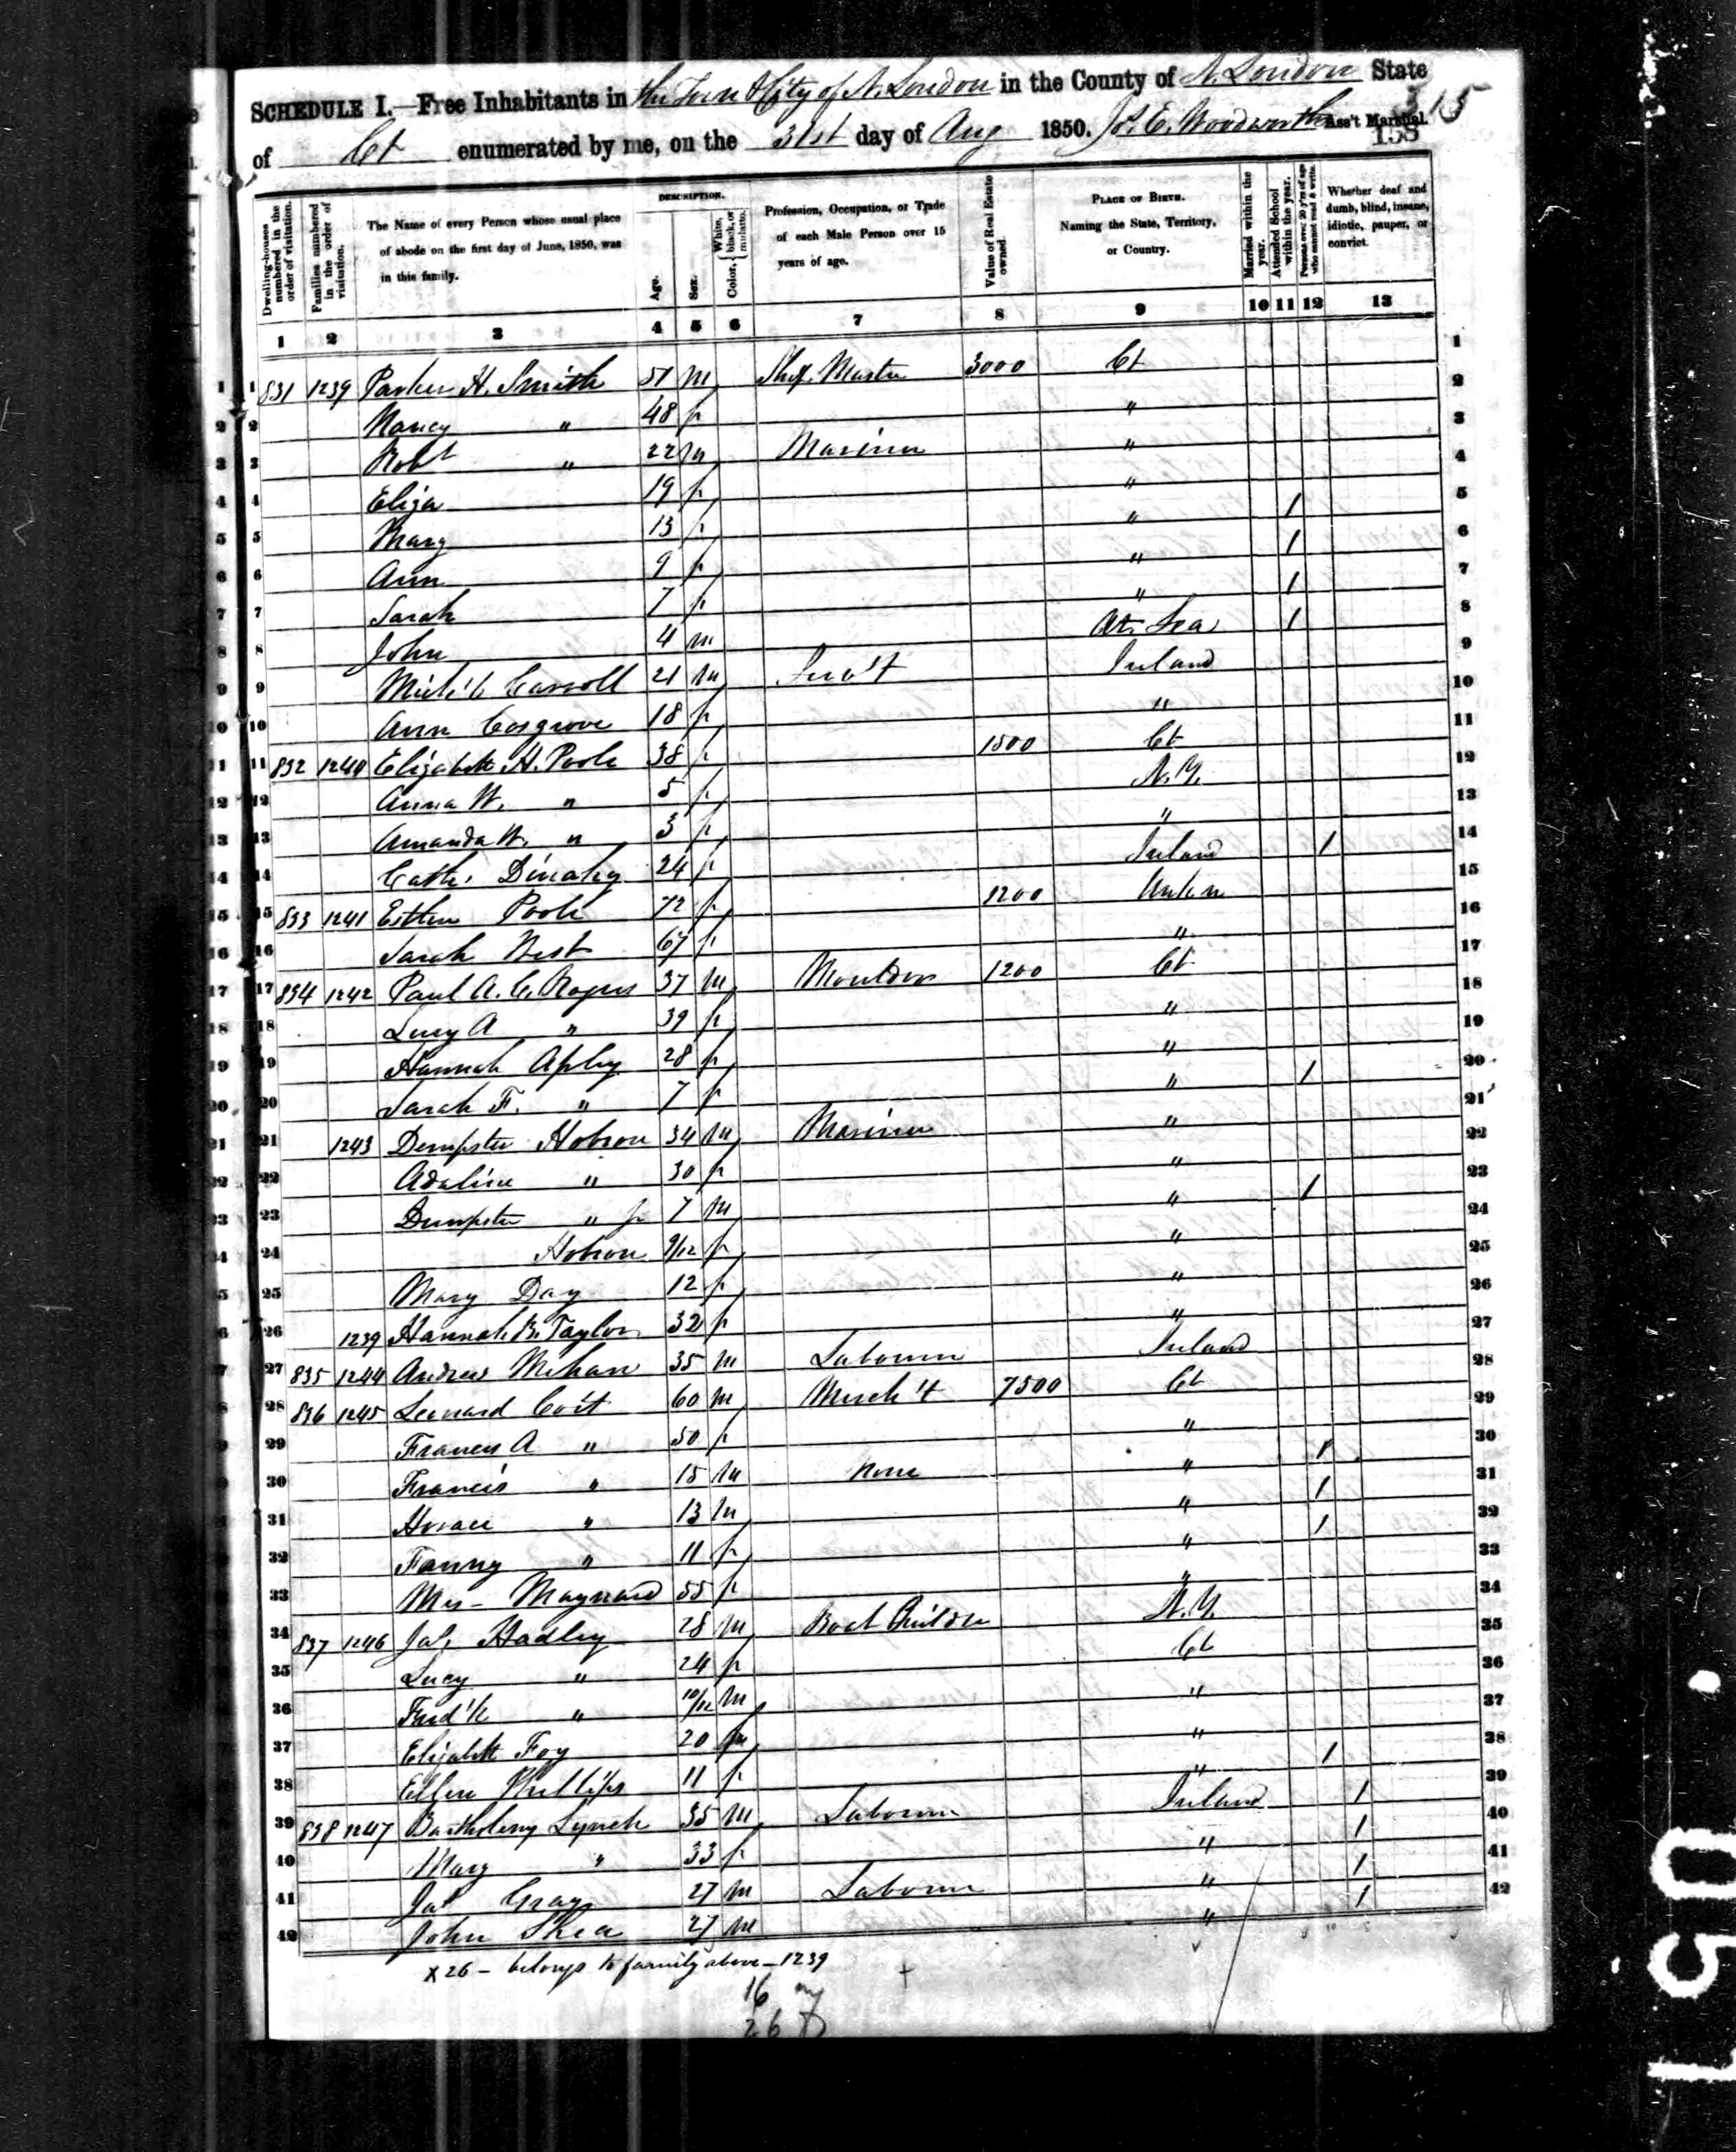 SCHEDULE I.—Free Inhabitants in the Town & City of N. London in the County of N. London State
of Ct enumerated by me, on the 31st day of Aug 1850. Js. E. Woodworth Ass't Marshal.
315
158
Dwelling-houses numbered in the order of visitation.
Families numbered in the order of visitation.
The Name of every Person whose usual place of abode on the first day of June, 1850, was in this family.
DESCRIPTION.
Age.
Sex.
Color, { White, black, or mulatto.
Profession, Occupation, or Trade of each Male Person over 15 years of age.
Value of Real Estate owned.
PLACE OF BIRTH. Naming the State, Territory, or Country.
Married within the year.
Attended School within the year.
Persons over 20 y'rs of age who cannot read & write.
Whether deaf and dumb, blind, insane, idiotic, pauper, or convict.
1 2 3 4 5 6 7 8 9 10 11 12 13
1 831 1239 Parker H. Smith 51 m Ship Master 3000 Ct 1
2 Nancy " 48 f " 2
3 Robt " 22 m Mariner " 3
4 Eliza 19 f " 4
5 Mary 13 f " 1 5
6 Ann 9 f " 1 6
7 Sarah 7 f " 1 7
8 John 4 m At Sea 1 8
9 Mich'l Carroll 21 m Serv't Ireland 9
10 Ann Cosgrove 18 f " 10
11 832 1240 Elizabeth H. Poole 38 f 1500 Ct 11
12 Anna W. " 5 f N.Y. 12
13 Amanda W. " 3 f " 13
14 Cath. 24 f Ireland 1 14
15 833 1241 Esther Poole 72 f 1200 Unkn 15
16 Sarah 67 f " 16
17 834 1242 Paul A. C. Rogers 37 m Moulder 1200 Ct 17
18 Lucy A " 39 f " 18
19 Hannah Apley 28 f " 19
20 Sarah F. " 7 f " 1 20
21 1243 Dempster Hobron 34 m Mariner " 21
22 Adaline " 30 f " 22
23 Dempster " jr 7 m " 1 23
24 Hobron 9/12 f " 24
25 Mary Day 12 f " 25
26 1239 Hannah B. Taylor 32 f " 26
27 835 1244 Andrew Mehan 35 m Labourer Ireland 27
28 836 1245 Leonard Coit 60 m Merch't 7500 Ct 28
29 Frances A " 50 f " 29
30 Francis " 15 m None " 1 30
31 Horace " 13 m " 1 31
32 Fanny " 11 f " 1 32
33 Mrs - Maynard 55 f " 33
34 837 1246 Jas Hadley 28 m Boat Builder N.Y. 34
35 Lucy " 24 f Ct 35
36 Fred'k " 10/12 m " 36
37 Elizabeth Foy 20 f " 37
38 Ellen Phillips 11 f " 1 38
39 838 1247 Bartholemy Lynch 35 m Labourer Ireland 1 39
40 Mary " 33 f " 1 40
41 Jas Gray 27 m Labourer " 1 41
42 John Shea 27 m " 1 42
x 26 - belongs to family above - 1239
16 m
26 f
051